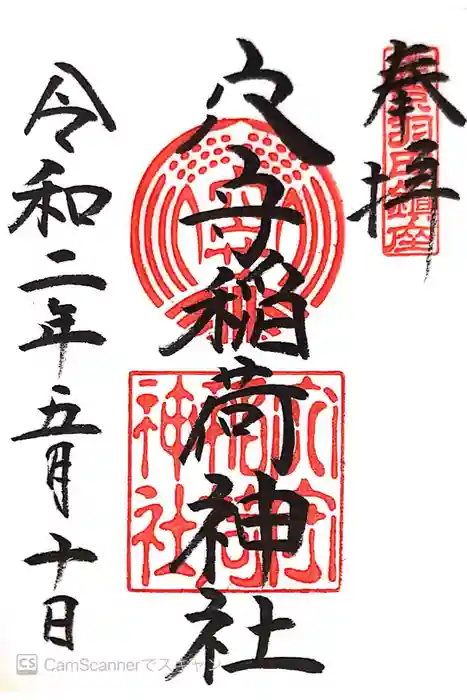 奉拝
穴守稲荷神社
穴守稲荷神社
令和二年五月十日
CS CamScannerでスキャン